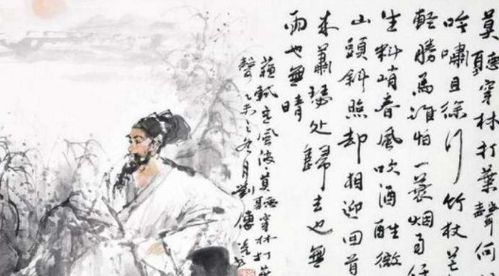 莫聽穿林打葉聲何
吟嘯且徐行竹杖芒
輕勝馬誰怕一蓑烟雨任
生料峭春風吹酒醒微
山頭斜照却相迎回首
来蕭瑟處歸去也無
雨也無晴
蘇軾定風波莫聽穿林打葉
聲乙未月劉傳